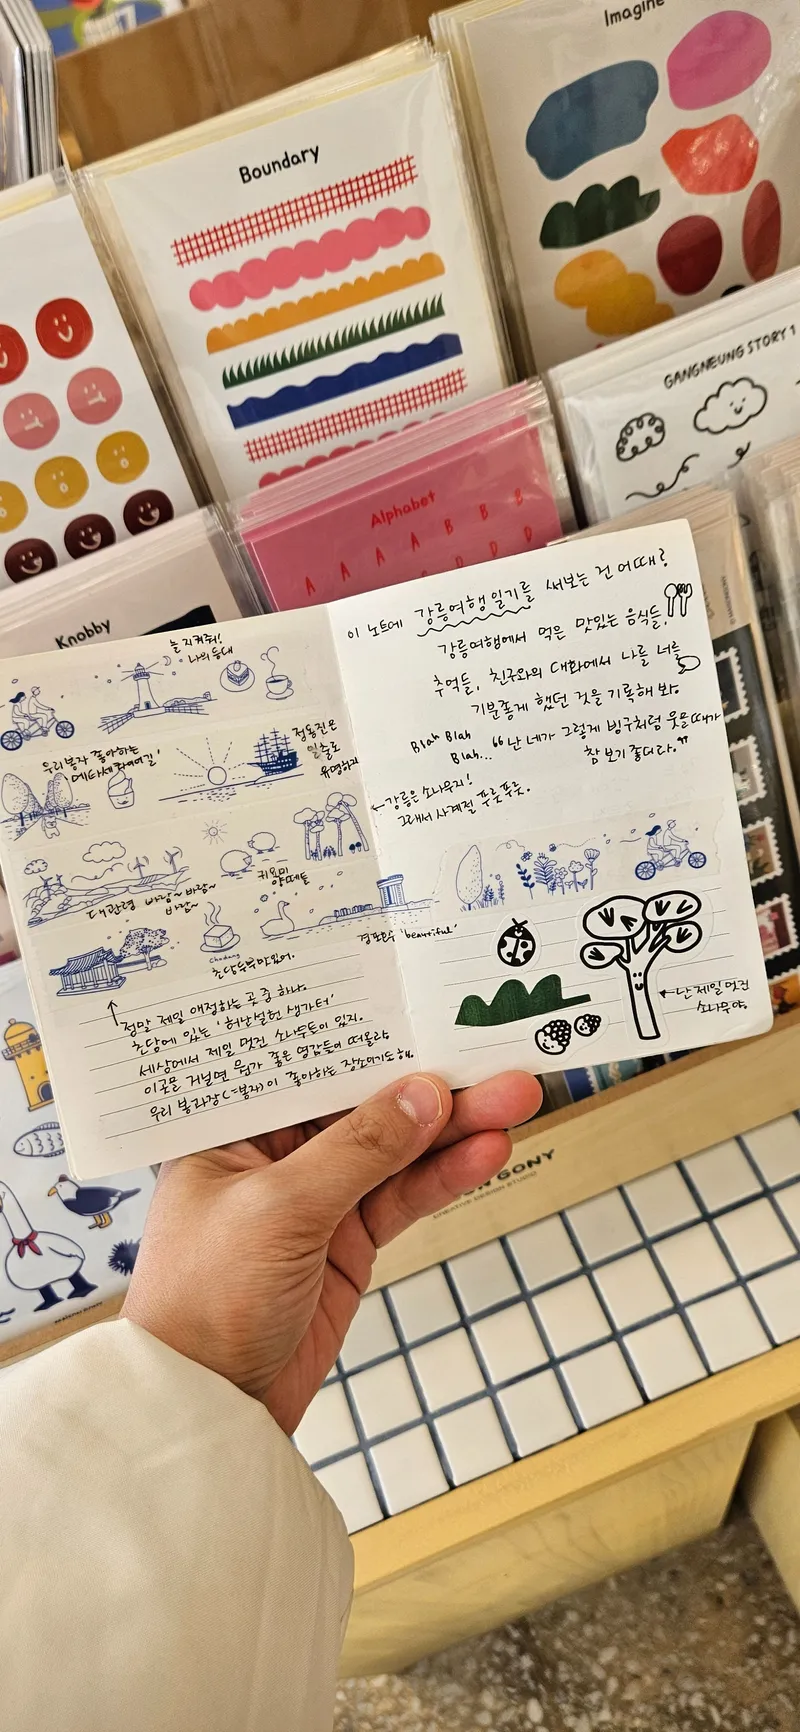 Imagine
Boundary
GANGNEUNG STORY 1
Alphabet
A A A A B B B
D D
Knobby
늘 지켜줘!
나의 등대
우리 봉자 좋아하는
메타세쿼이어길!
정동진은
일출로
유명하지
대관령 바람~ 바람~
바람~
귀요미
양떼들
Chodang
초당두부맛있어.
경포호수 'beautiful'
정말 제일 애정하는 곳 중 하나.
초당에 있는 '허난설헌 생가터'
세상에서 제일 멋진 소나무들이 있지.
이곳을 거닐면 뭔가 좋은 영감들이 떠올라.
우리 봉과장(=봉자)이 좋아하는 장소이기도 해.
이 노트에 강릉여행 일기를 써보는 건 어때?
강릉여행에서 먹은 맛있는 음식들,
추억들, 친구와의 대화에서 나를 너를
기분좋게 했던 것을 기록해 봐.
Blah Blah
Blah... "난 네가 그렇게 빙구처럼 웃을때가
참 보기 좋더라."
←강릉은 소나무지!
그래서 사계절 푸릇푸릇.
←난 제일 멋진
소나무야
GONY
CREATIVE DESIGN STUDIO